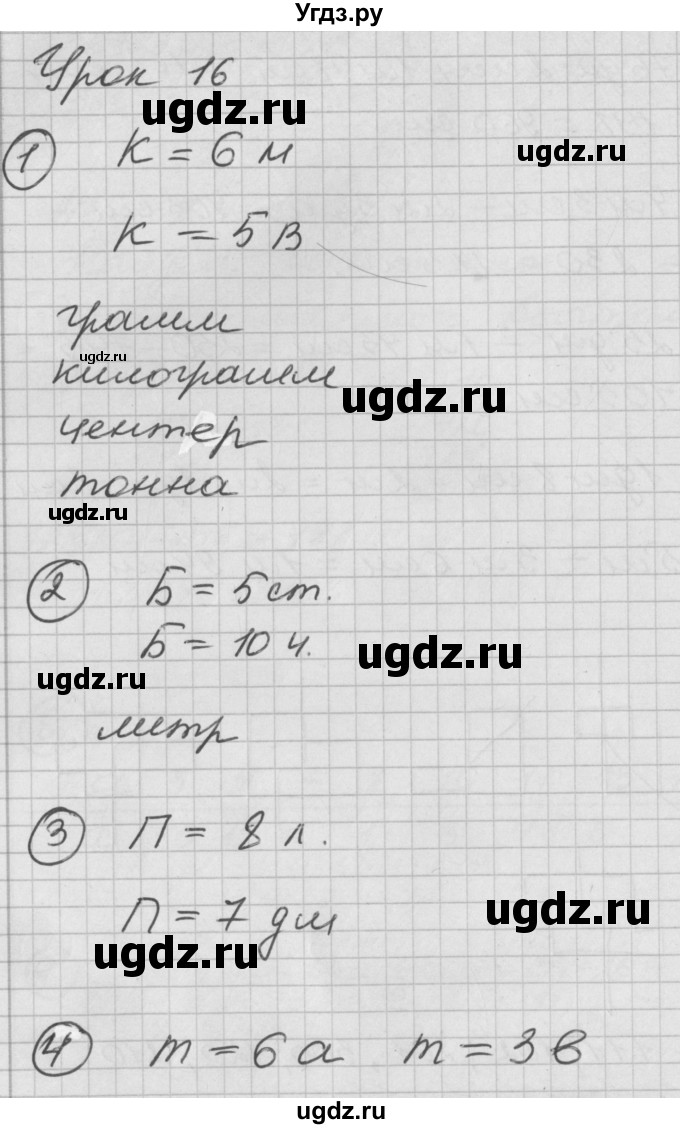 Угдз.ру
Урок 16
ugdz.ru
1 К = 6 м
ugdz.ru
К = 5 В
грамм
ugdz.ru
килограмм
ugdz.ru
центер
тонна
ugdz.ru
2 Б = 5 ст.
Б = 10 ч.
ugdz.ru
ugdz.ru
литр
3 П = 8 л.
ugdz.ru
П = 7 дм
ugdz.ru
4 m = 6 а m = 3 в
ugdz.ru